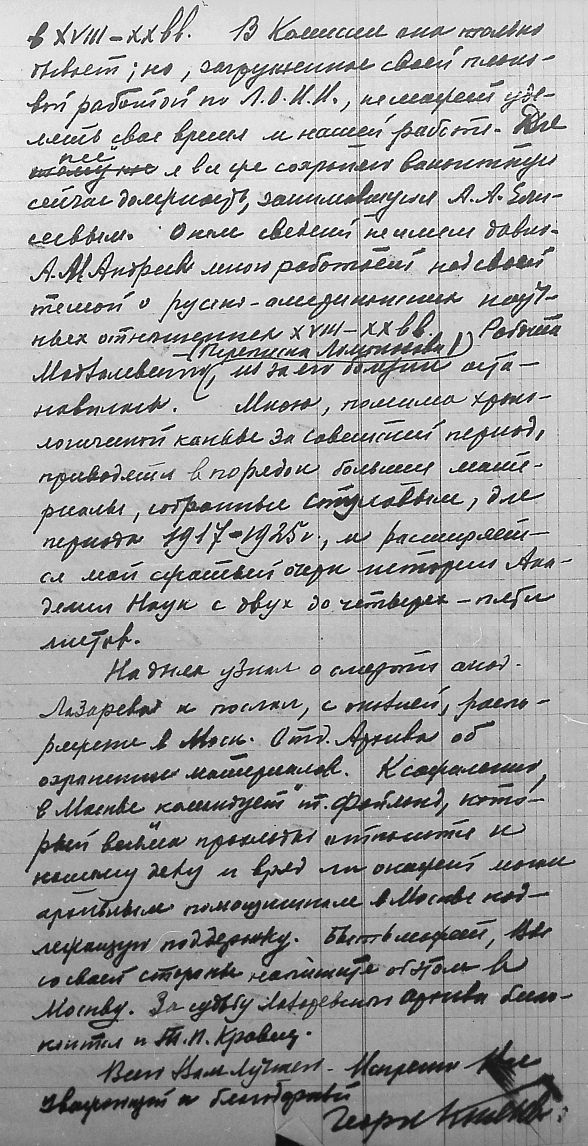 в XVIII–XX вв. В Комиссии она только
бывает; но, загруженное своей плано-
вой работой по Л.О.И.И., не может уде-
лить свое время и нашей работе. Для
нее я все же сохраняю вакантную
сейчас должность, занимавшуюся А.А. Ели-
сеевым. О нем сведений не имеем давно.
А.И. Андреев много работает над своей
темой о русско-американских науч-
ных отношениях XVIII–XX вв. Работа
(Переписка Ломоносова)
Модзалевского, из за его болезни оста-
новилась. Мною, помимо хроно-
логической канвы за советский период,
приводятся в порядок большие мате-
риалы, собранные Стуловым, для
периода 1917–1925 г., и расширяет-
ся мой краткий очерк истории Ака-
демии Наук с двух до четырех – пяти
листов.
На днях узнал о смерти акад.
Лазарева и послал, с оказией, распо-
ряжение в Моск. Отд. Архива об
охранении материалов. К сожалению,
в Москве командует т. Фейланд, кото-
рый весьма прохладно относится к
нашему делу и вряд ли окажет моим
архивным помощникам в Москве над-
лежащую поддержку. Быть может, Вы
со своей стороны напишите об этом в
Москву. За судьбу Лазаревского архива беспо-
коится и Т.П. Кравец.
Всего Вам лучшего. Искренно Вас
уважающий и благодарный
Георг Князев.